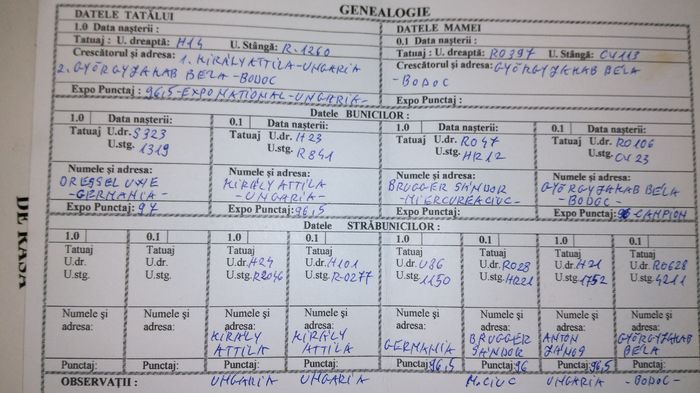 GENEALOGIE
DATELE TATĂLUI
1.0 Data nașterii :
Tatuaj : U. dreaptă: H14 U. Stângă: R-1260
Crescătorul și adresa: 1. KIRÁLY ATTILA - UNGARIA
2. GYÖRGYJAKAB BELA - BODOC
Expo Punctaj : 96,5 - EXPO NATIONAL - UNGARIA -
DATELE MAMEI
0.1 Data nașterii :
Tatuaj : U. dreaptă: RO397 U. Stângă: CV113
Crescătorul și adresa: GYÖRGYJAKAB BELA
- BODOC
Expo Punctaj :
Datele BUNICILOR :
1.0 Data nașterii:
Tatuaj U.dr. S323
U.stg. 1319
Numele și adresa:
DRESSEL UWE
- GERMANIA -
Expo Punctaj: 97
0.1 Data nașterii:
Tatuaj U.dr. H23
U.stg. R841
Numele și adresa:
KIRÁLY ATTILA
- UNGARIA -
Expo Punctaj: 96,5
1.0 Data nașterii:
Tatuaj U.dr. RO47
U.stg. HR12
Numele și adresa:
BRUGGER SÁNDOR
- MIERCUREA CIUC -
Expo Punctaj:
0.1 Data nașterii:
Tatuaj U.dr. RO106
U.stg. CV23
Numele și adresa:
GYÖRGYJAKAB BÉLA
- BODOC -
Expo Punctaj: 96 CAMPION
Datele STRĂBUNICILOR :
1.0
Tatuaj
U.dr.
U.stg.
Numele și
adresa:
Punctaj:
0.1
Tatuaj
U.dr.
U.stg.
Numele și
adresa:
Punctaj:
1.0
Tatuaj
U.dr. H24
U.stg. R2046
Numele și
adresa:
KIRÁLY
ATTILA
Punctaj:
UNGARIA
0.1
Tatuaj
U.dr. H101
U.stg. R-0277
Numele și
adresa:
KIRÁLY
ATTILA
Punctaj:
UNGARIA
1.0
Tatuaj
U.dr. U86
U.stg. 1150
Numele și
adresa:
GERMANIA
Punctaj: 96,5
0.1
Tatuaj
U.dr. RO28
U.stg. HR21
Numele și
adresa:
BRUGGER
SÁNDOR
Punctaj: 96
M. CIUC
1.0
Tatuaj
U.dr. H21
U.stg. 1752
Numele și
adresa:
ANTON
JÁNOS
Punctaj: 96,5
UNGARIA
0.1
Tatuaj
U.dr. RO628
U.stg. 4211
Numele și
adresa:
GYÖRGYJAKAB
BÉLA
Punctaj:
- BODOC -
OBSERVAȚII :
DE RASA